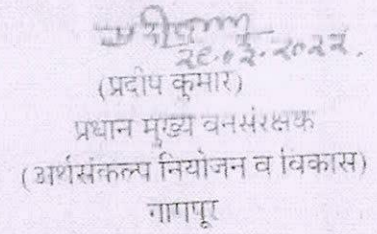 (प्रदीप कुमार)
प्रधान मुख्य वनसंरक्षक
(अर्थसंकल्प नियोजन व विकास)
नागपूर